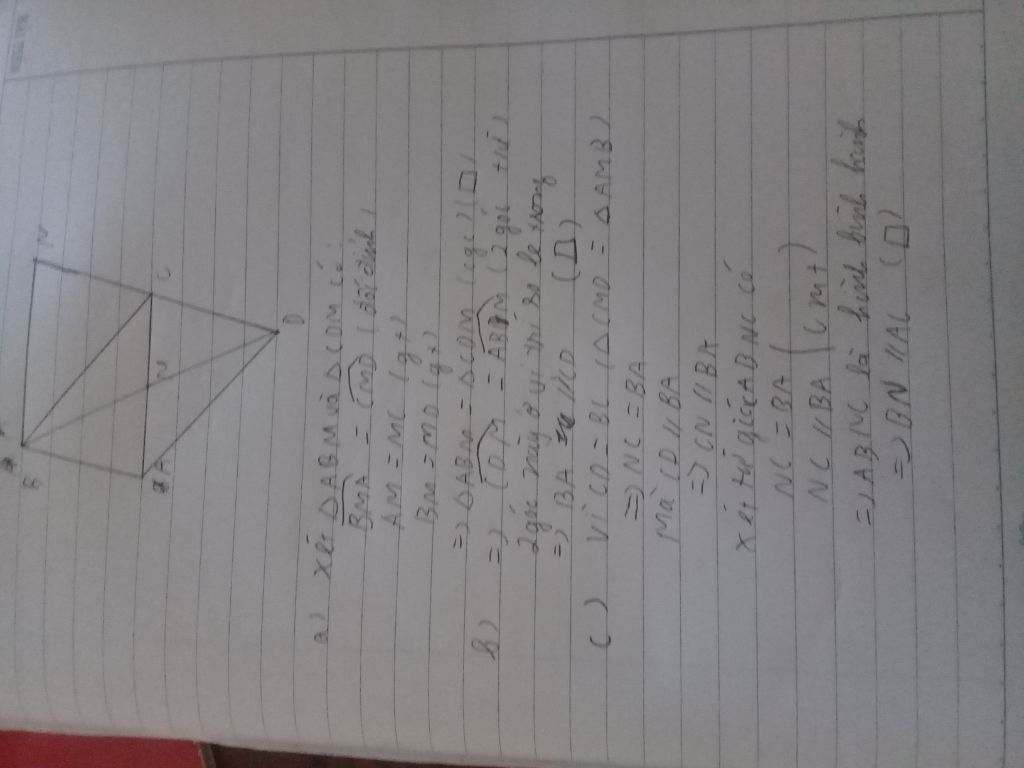 N
B
C
M
A
D
a) xét ΔABM và ΔCDM có
BMA = CMD (đối đỉnh)
AM = MC (gt)
BM = MD (gt)
=> ΔABM = ΔCDM (cgc) (□)
b) => CDM = ABM (2 góc tứ)
2 góc này ở vị trí so le trong
=> BA // CD (□)
c) Vì CD = BC (ΔCMD = ΔAMB)
=> NC = BA
Mà CD // BA
=> CN // BA
xét tứ giác ABNC có
NC = BA
NC // BA (cmt)
=> ABNC là hình bình hành
=> BN // AC (□)